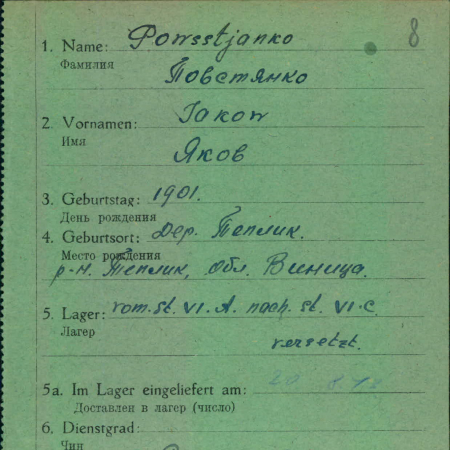 8
1. Name: Powsstjanko
Фамилия
Повстянко
2. Vornamen: Jakow
Имя
Яков
3. Geburtstag: 1901.
День рождения
4. Geburtsort: Дер. Теплик.
Место рождения
р-н. Теплик, обл. Виница.
5. Lager: vom. st. VI. A. nach. st. VI. C.
Лагер
versetzt.
5a. Im Lager eingeliefert am:
Доставлен в лагер (число)
6. Dienstgrad:
Чин